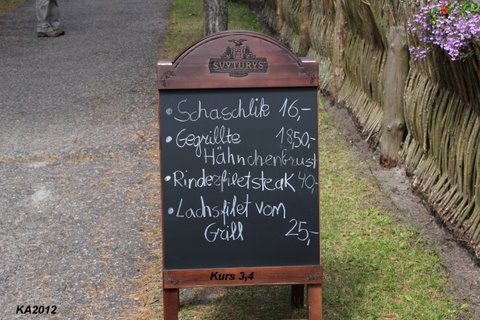 ŠVYTURYS
• Schaschlik 16,-
• Gegrillte 18,50,-
Hähnchenbrust
• Rinderfiletsteak 40,-
• Lachsfilet vom
Grill 25,-
Kurs 3,4
KA2012